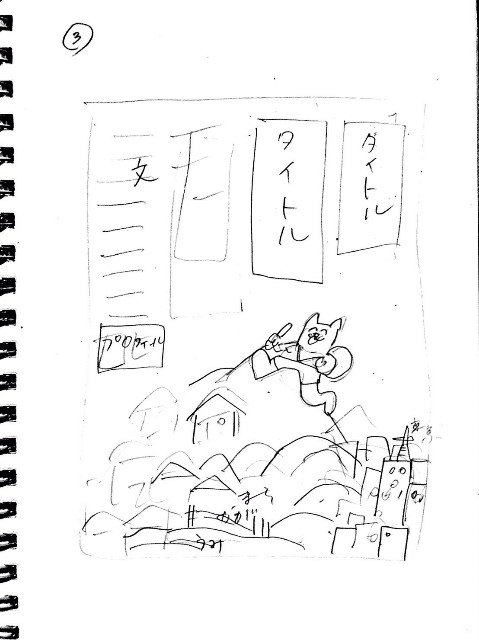 3
タイトル
タイトル
文
プロフィール
まち
うみ